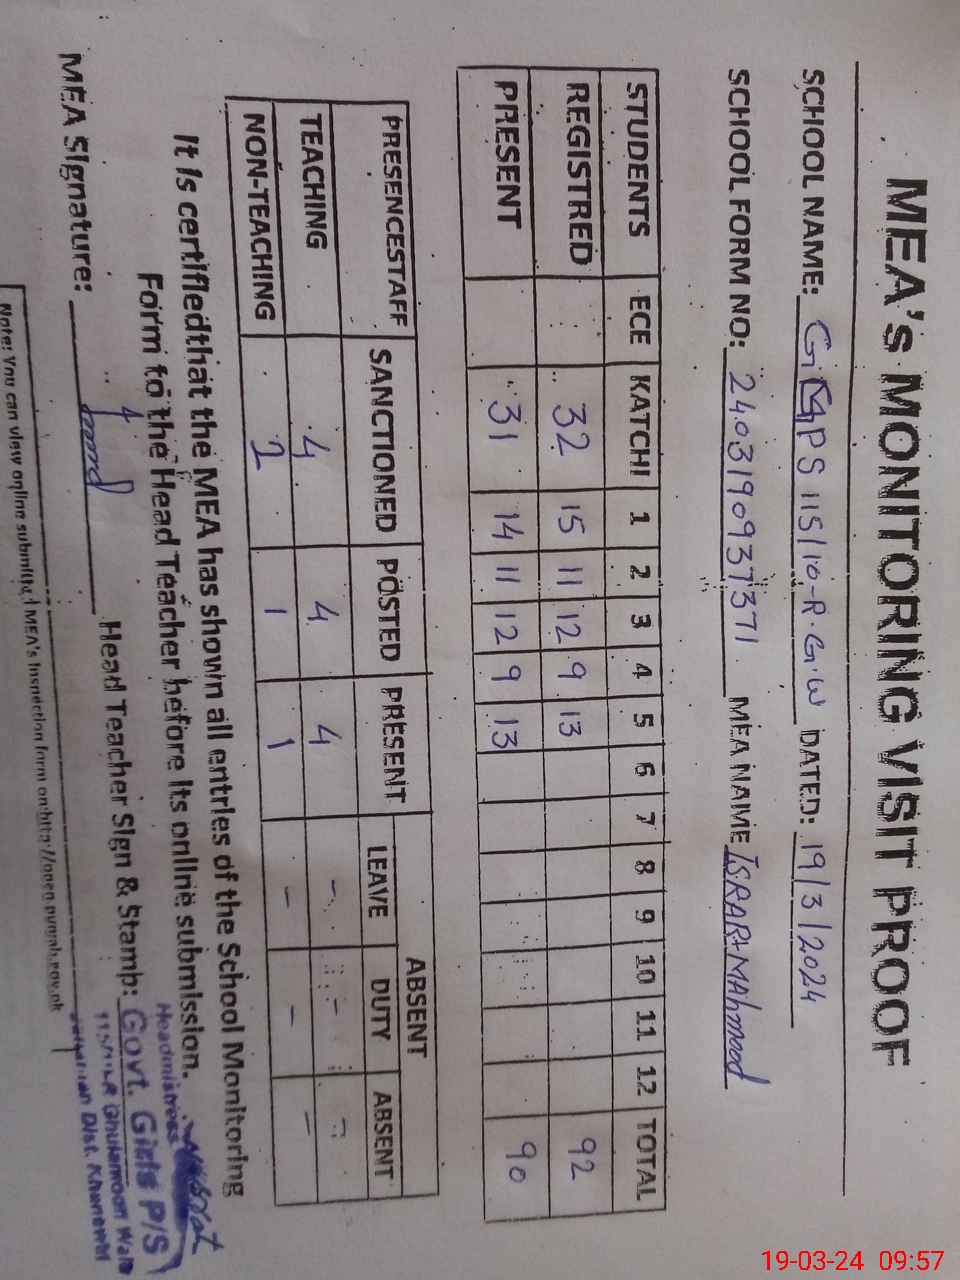 MEA's MONITORING VISIT PROOF
SCHOOL NAME: GGPS 115/10-R.G.W DATED: 19/3/2024
SCHOOL FORM NO: 2403190937371 MEA NAME ISRAR MAhmood
STUDENTS ECE KATCHI 1 2 3 4 5 6 7 8 9 10 11 12 TOTAL
REGISTRED 32 15 11 12 9 13 92
PRESENT 31 14 11 12 9 13 90
PRESENCESTAFF SANCTIONED POSTED PRESENT ABSENT
LEAVE DUTY ABSENT
TEACHING 4 4 4 - - -
NON-TEACHING 2 1 1 - - -
It is certifiedthat the MEA has shown all entries of the School Monitoring
Form to the Head Teacher before its online submission.
MEA Signature: Head Teacher Sign & Stamb:
Headmistress
Govt. Girls P/S
Dist. Khanewal
Note: You can view online submitted MEA's Inspection form on
19-03-24 09:57